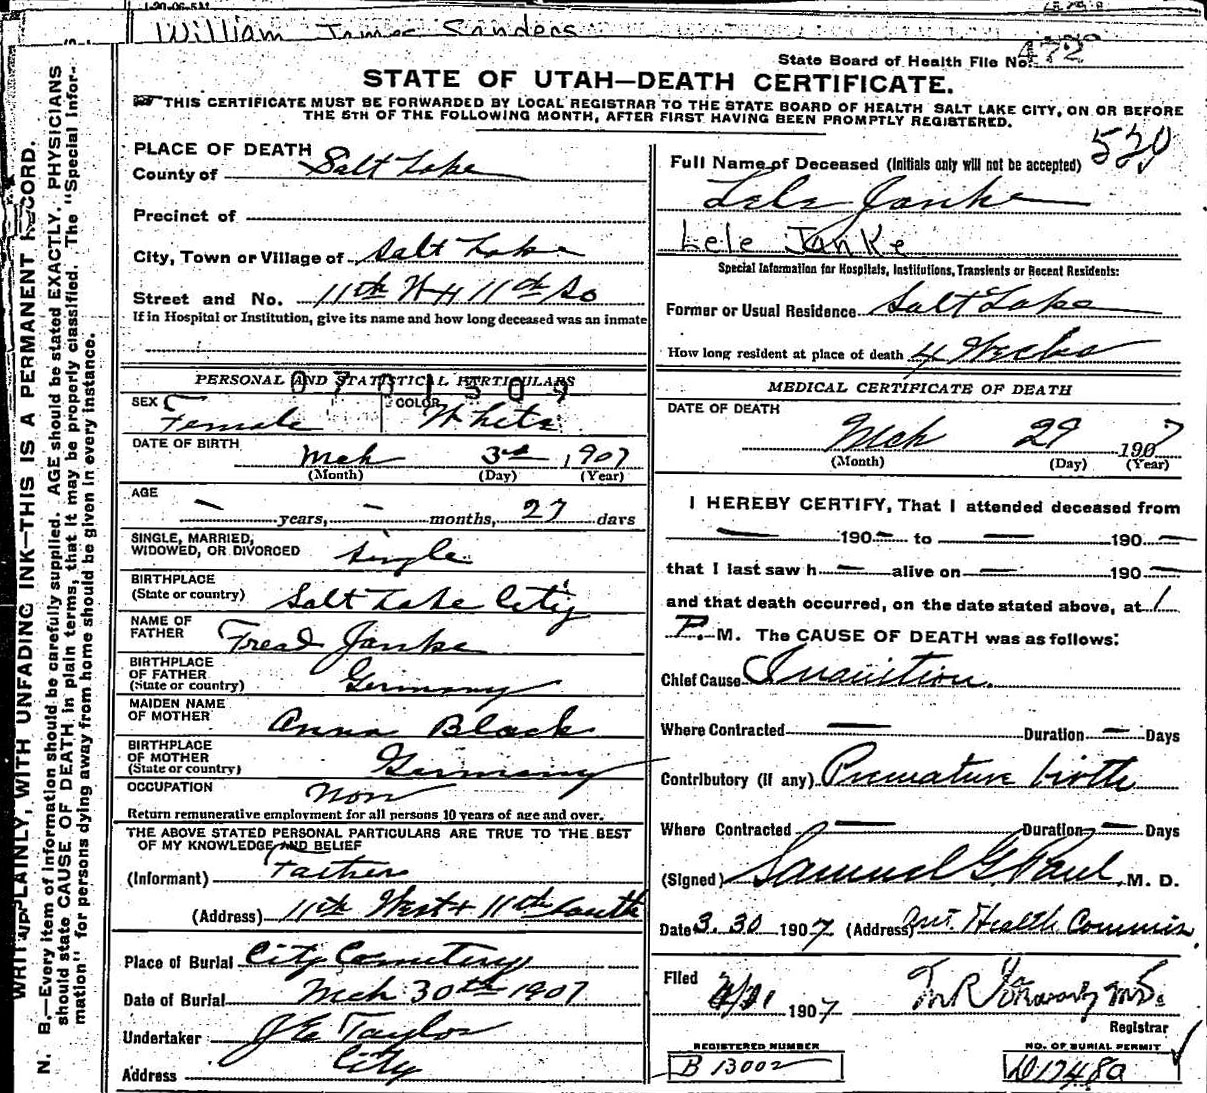 William James Sanders
State Board of Health File No. 472
STATE OF UTAH—DEATH CERTIFICATE.
THIS CERTIFICATE MUST BE FORWARDED BY LOCAL REGISTRAR TO THE STATE BOARD OF HEALTH SALT LAKE CITY, ON OR BEFORE
THE 5TH OF THE FOLLOWING MONTH, AFTER FIRST HAVING BEEN PROMPTLY REGISTERED.
WRITE PLAINLY, WITH UNFADING INK—THIS IS A PERMANENT RECORD.
N. B.—Every item of information should be carefully supplied. AGE should be stated EXACTLY. PHYSICIANS
should state CAUSE OF DEATH in plain terms, that it may be properly classified. The "Special Infor-
mation" for persons dying away from home should be given in every instance.
PLACE OF DEATH
County of Salt Lake
Precinct of
City, Town or Village of Salt Lake
Street and No. 11th W + 11th So
If in Hospital or Institution, give its name and how long deceased was an inmate
PERSONAL AND STATISTICAL PARTICULARS
0701509
SEX Female COLOR White
DATE OF BIRTH Mch 3rd, 1907
(Month) (Day) (Year)
AGE
— years, — months, 27 days
SINGLE, MARRIED,
WIDOWED, OR DIVORCED Single
BIRTHPLACE
(State or country) Salt Lake City
NAME OF
FATHER Fread Janke
BIRTHPLACE
OF FATHER
(State or country) Germany
MAIDEN NAME
OF MOTHER Anna Black
BIRTHPLACE
OF MOTHER
(State or country) Germany
OCCUPATION Non
Return remunerative employment for all persons 10 years of age and over.
THE ABOVE STATED PERSONAL PARTICULARS ARE TRUE TO THE BEST
OF MY KNOWLEDGE AND BELIEF
(Informant) Father
(Address) 11th West + 11th South
Place of Burial City Cemetery
Date of Burial Mch 30th 1907
Undertaker J E Taylor
Address City
530
Full Name of Deceased (Initials only will not be accepted)
Lele Janke
Lele Janke
Special Information for Hospitals, Institutions, Transients or Recent Residents:
Former or Usual Residence Salt Lake
How long resident at place of death 4 Weeks
MEDICAL CERTIFICATE OF DEATH
DATE OF DEATH
Mch 29 1907
(Month) (Day) (Year)
I HEREBY CERTIFY, That I attended deceased from
— 190— to — 190—
that I last saw h— alive on — 190—
and that death occurred, on the date stated above, at 1
P. M. The CAUSE OF DEATH was as follows:
Chief Cause Inanition.
Where Contracted — Duration — Days
Contributory (if any) Premature birth
Where Contracted — Duration — Days
(Signed) Samuel G. Paul M. D.
Date 3.30 1907 (Address) Health Commis.
Filed 1907
Registrar
REGISTERED NUMBER
B 13002
NO. OF BURIAL PERMIT
D17480